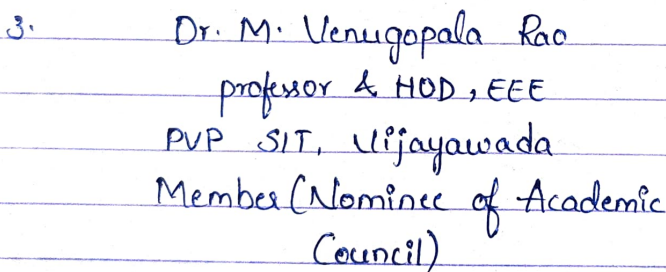 3. Dr. M. Venugopala Rao
professor & HOD, EEE
PVP SIT, Vijayawada
Member (Nominee of Academic
Council)